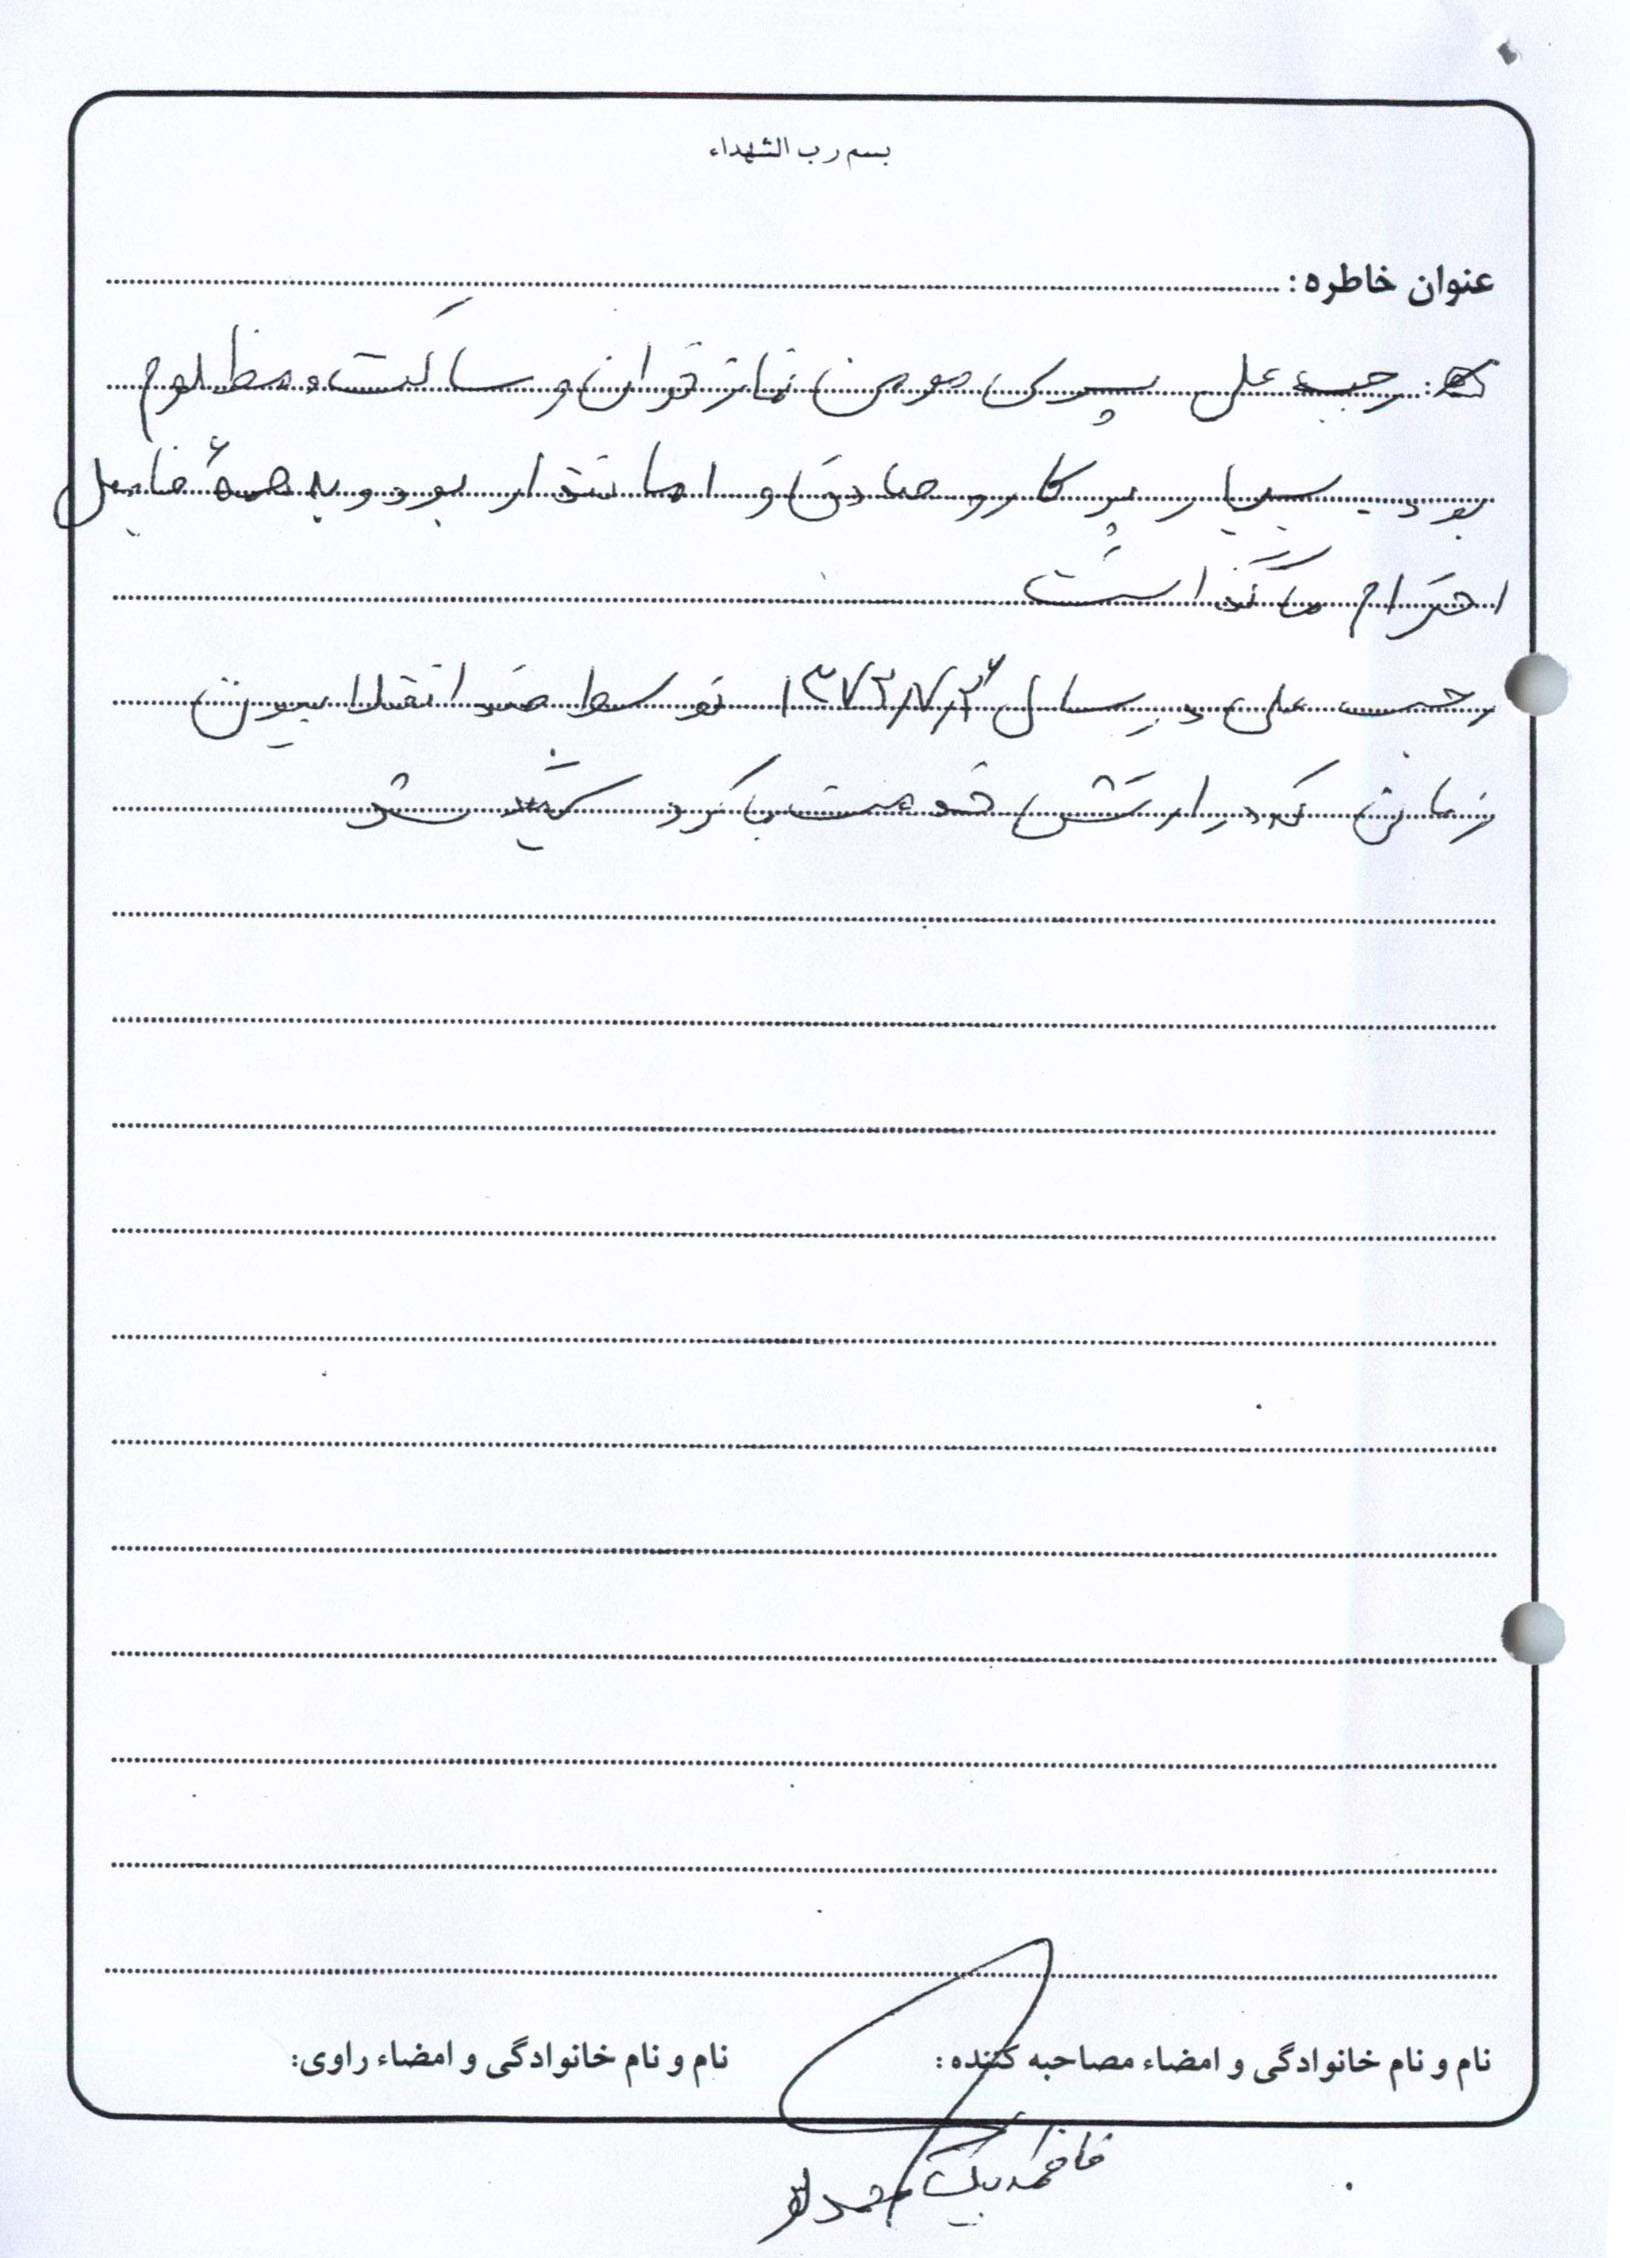 بسم رب الشهداء
عنوان خاطره :
رجب علی پسری مومن نماز خوان و ساکت و مظلوم
بود بسیار پر کار و صادق و امانتدار بود و به همۀ فامیل
احترام می گذاشت
رجب علی در سال ۱۳۷۲/۷/۲۶ توسط ضد انقلابیون
زمانی که در ارتش خدمت می کرد شهید شد
نام و نام خانوادگی و امضاء مصاحبه کننده :
نام و نام خانوادگی و امضاء راوی:
فاطمه بیک محمدلو